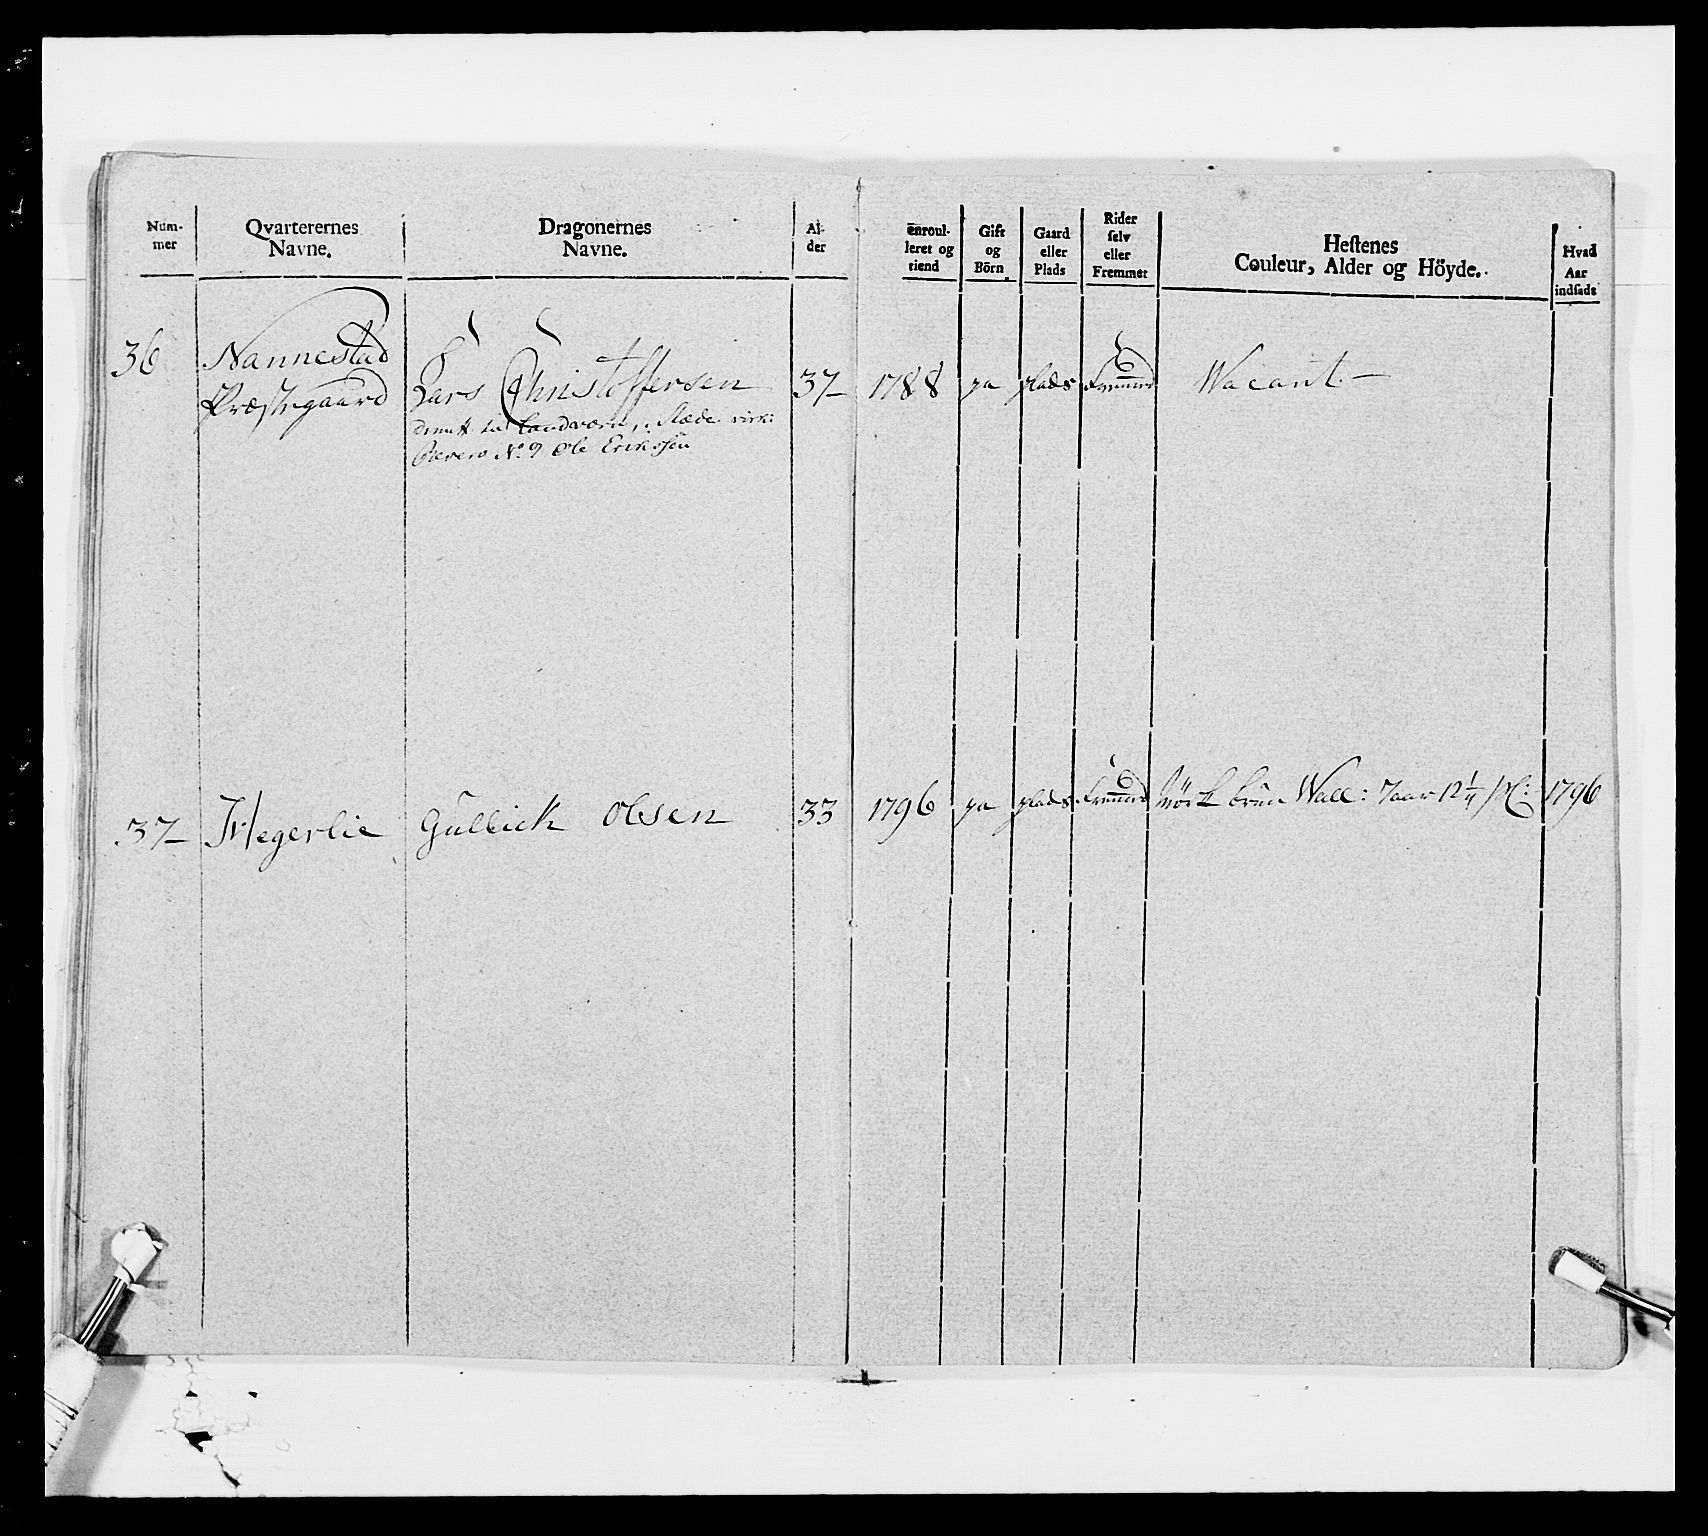 Num-
mer
Qvarterernes
Navne.
Dragonernes
Navne.
Al-
der
enroul-
leret og
tiend
Gift
og
Börn
Gaard
eller
Plads
Rider
selv
eller
Fremmet
Hestenes
Couleur, Alder og Höyde.
Hvad
Aar
indsadt
36 Nannestad
Præstegaard
Lars Christoffersen 37 1788 ja plads Fremmed Wacant
til Landværn, i Stæde
No 9 Ole Erikssen
37 Hegerlie Gulbick Olsen 33 1796 ja plads Fremmed Mörk brun Wall: 7 aar 12 1/4 1796